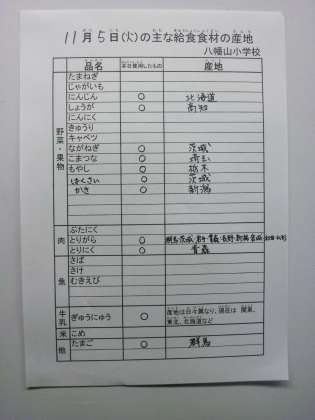 11月5日(火)の主な給食食材の産地
八幡山小学校
品名 本日使用したもの 産地
野菜・果物
たまねぎ
じゃがいも
にんじん ○ 北海道
しょうが ○ 高知
にんにく
きゅうり
キャベツ
ながねぎ ○ 茨城
こまつな ○ 埼玉
もやし ○ 栃木
はくさい ○ 茨城
かき ○ 新潟
肉
ぶたにく
とりがら ○
とりにく ○ 青森
魚
さば
さけ
むきえび
牛乳 ぎゅうにゅう ○ 産地は日々異なり、現在は 関東、
東北、北海道など
米 こめ
他 たまご ○ 群馬